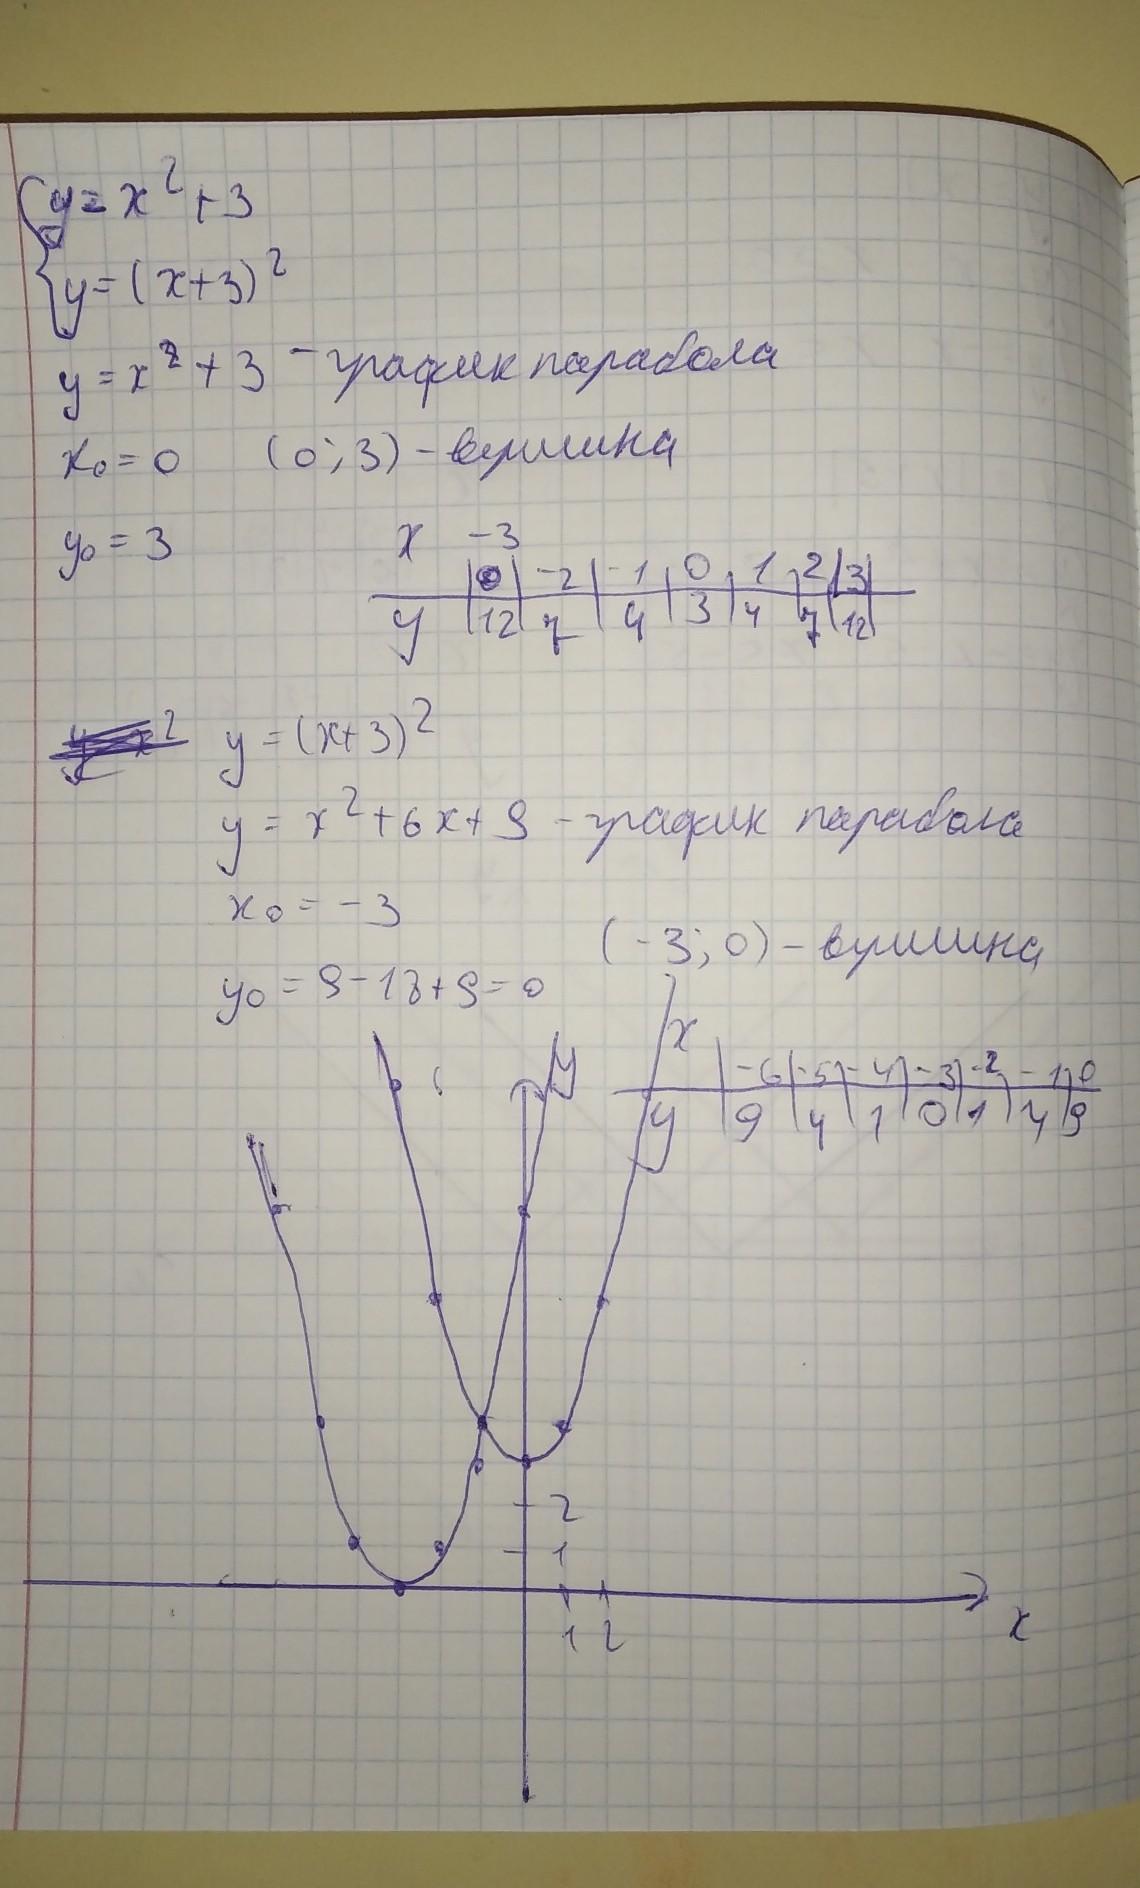 y = x² + 3
y = (x+3)²
y = x² + 3 - график парабола
x₀ = 0 (0; 3) - вершина
y₀ = 3
x -3 -2 -1 0 1 2 3
y 12 7 4 3 4 7 12
y = (x+3)²
y = x² + 6x + 9 - график парабола
x₀ = -3
(-3; 0) - вершина
y₀ = 9 - 18 + 9 = 0
x -6 -5 -4 -3 -2 -1 0
y 9 4 1 0 1 4 9
y
2
1
1 2
x